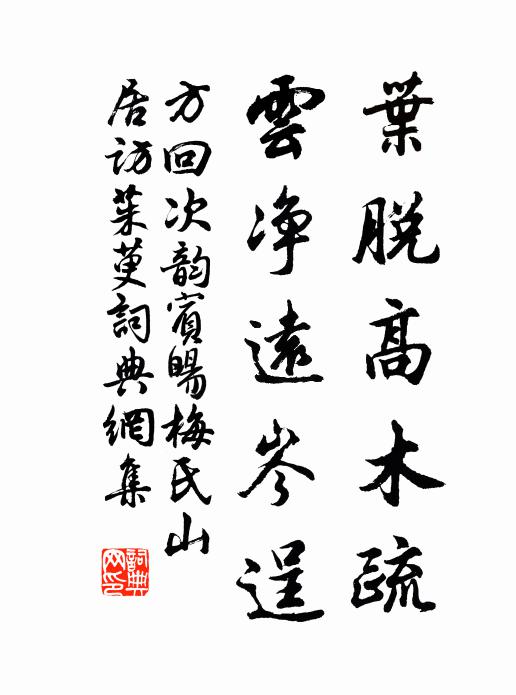 葉脱高木疏
雲净遠岑逞
方回次韵賓暘梅氏山
居訪茱萸詞典網集
詞典网印